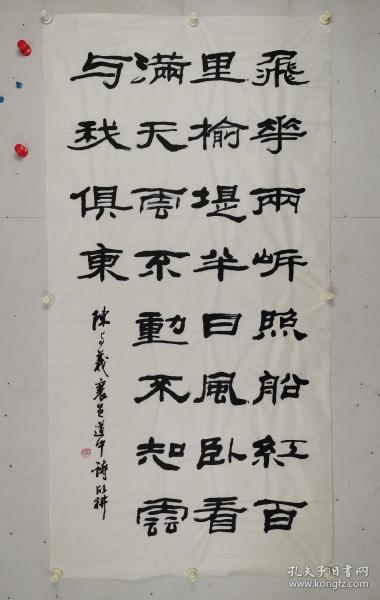 飛花兩岍照船紅百
里榆堤半日風臥看
滿天雲不動不知雲
与我俱東
陳与義襄邑道中詩
孔夫子旧书网
kongfz.com